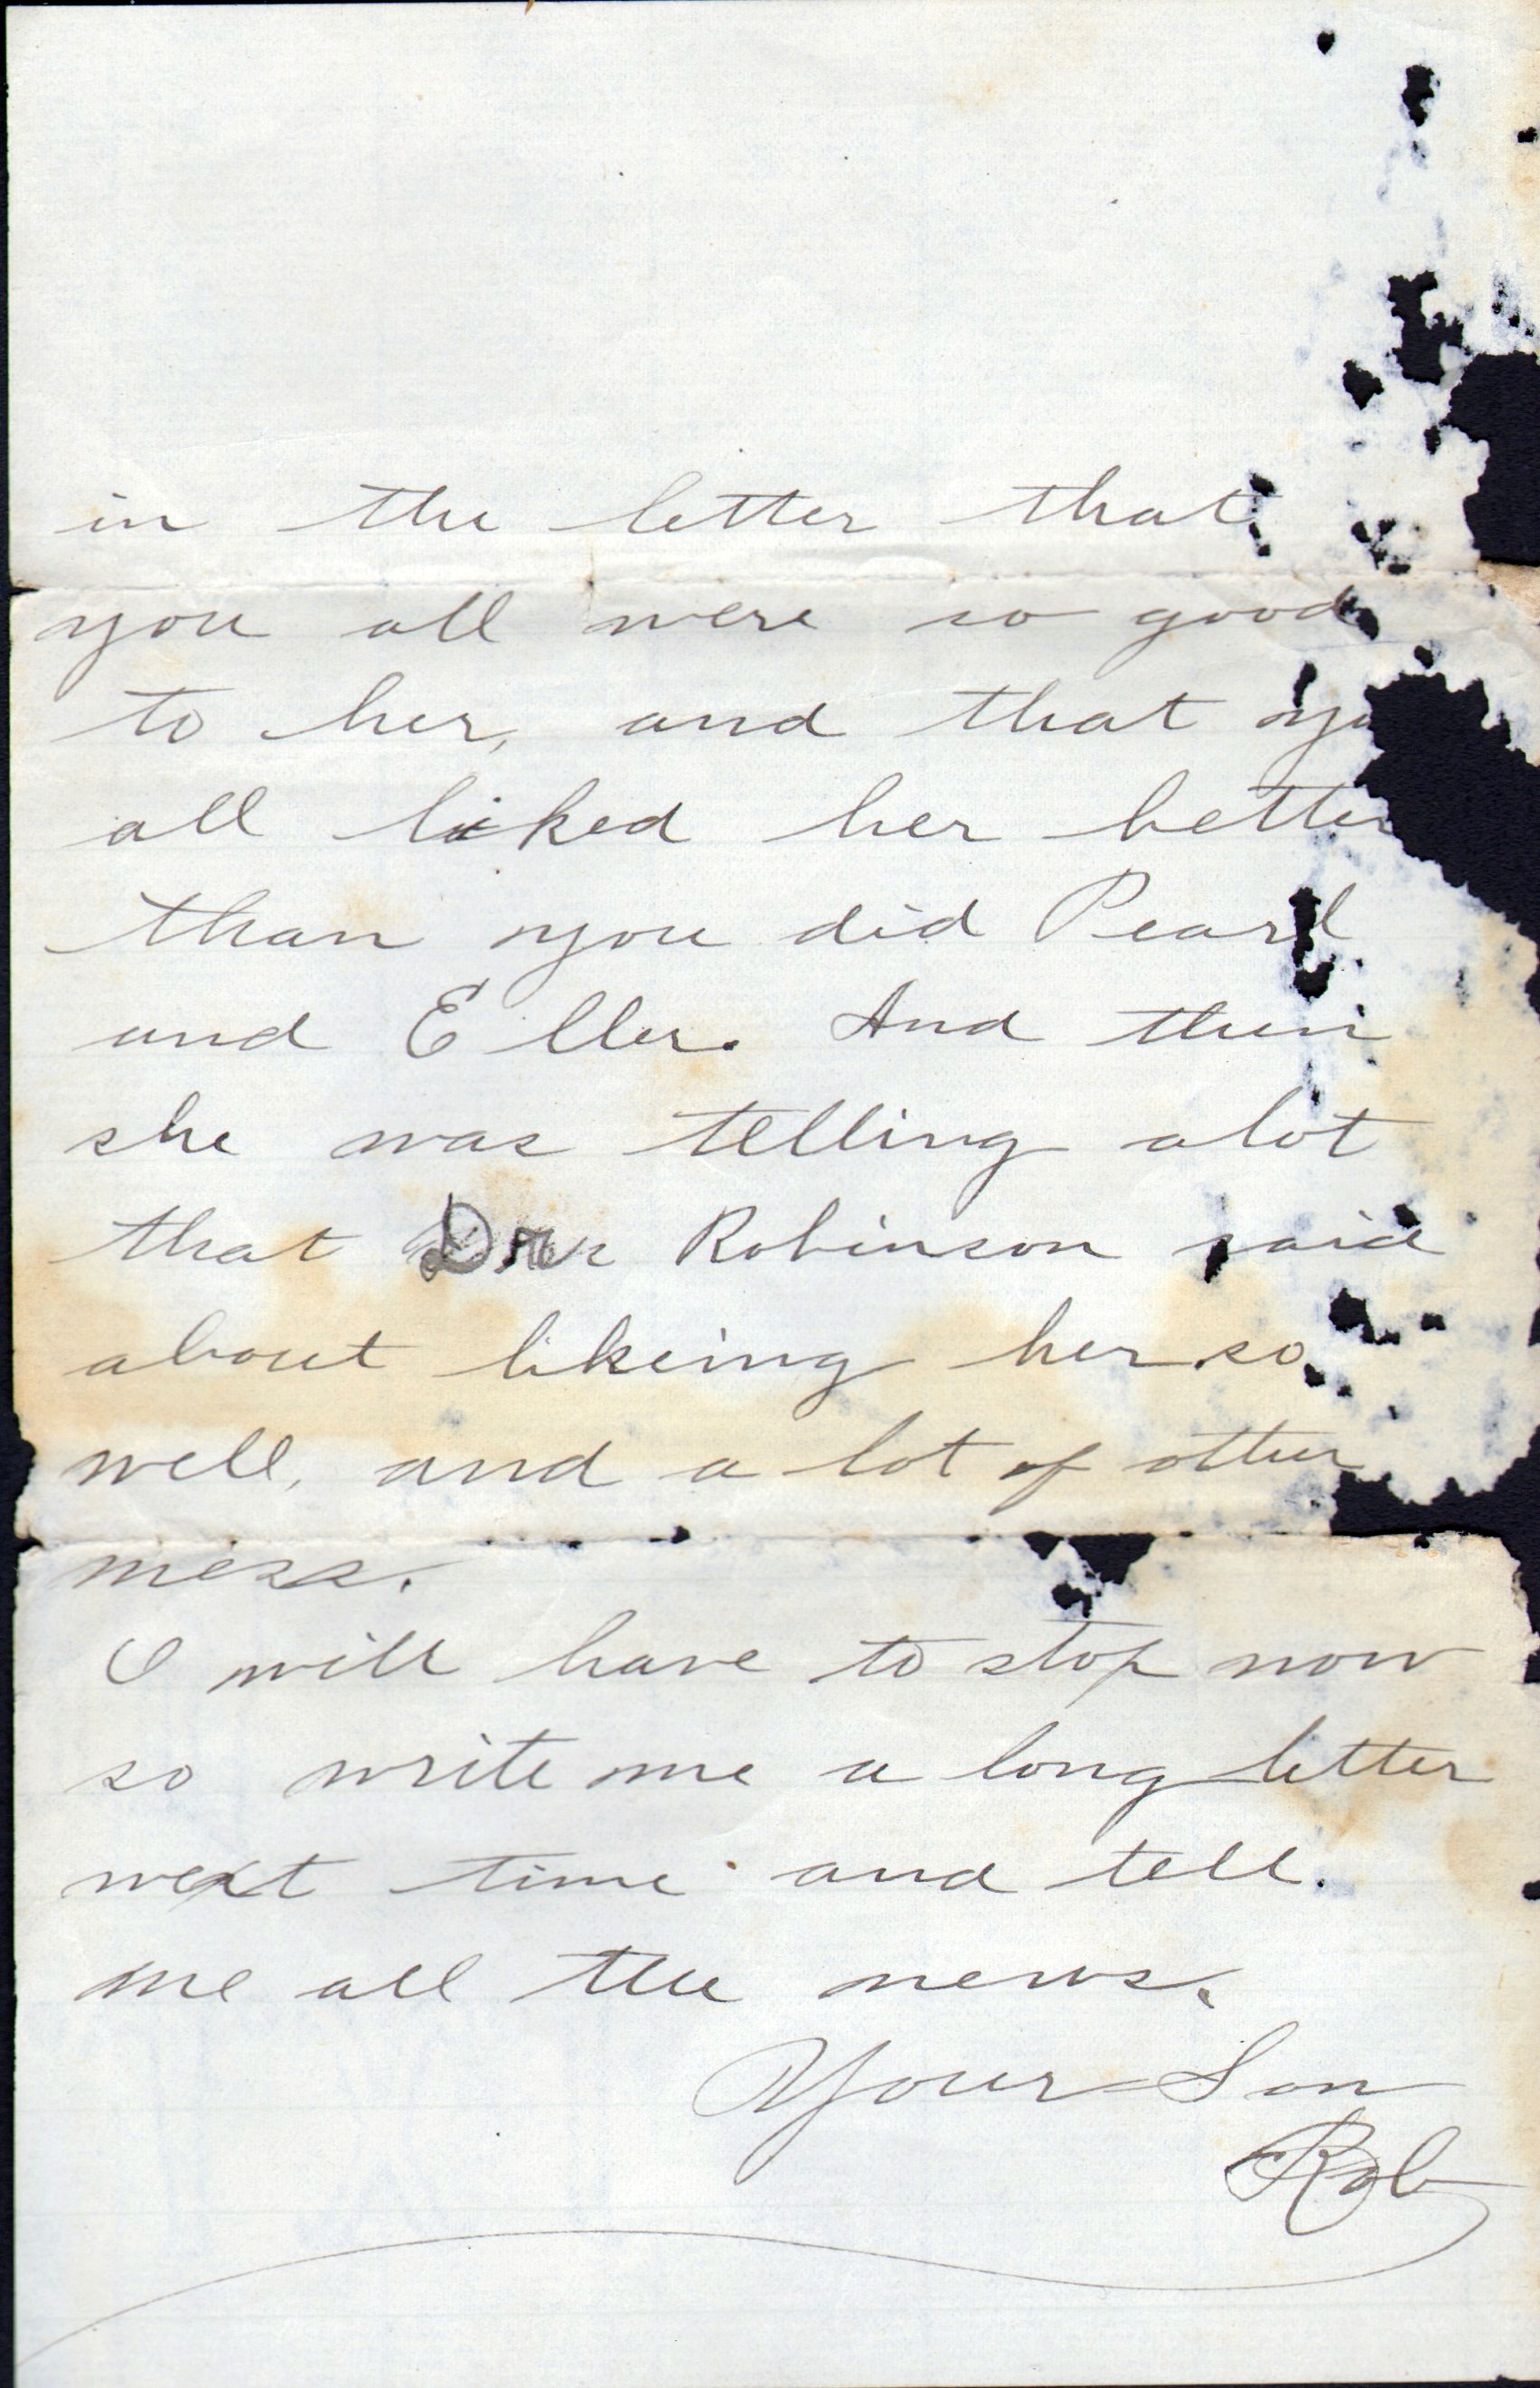 in the letter that
you all were so good
to her, and that yo
all liked her better
than you did Pearl
and Eller. And then
she was telling alot
that Robinson said
about likeing her so
well, and a lot of other
mess.
I will have to stop now
so write me a long letter
next time and tell.
me all the news.
Your Son
Rob